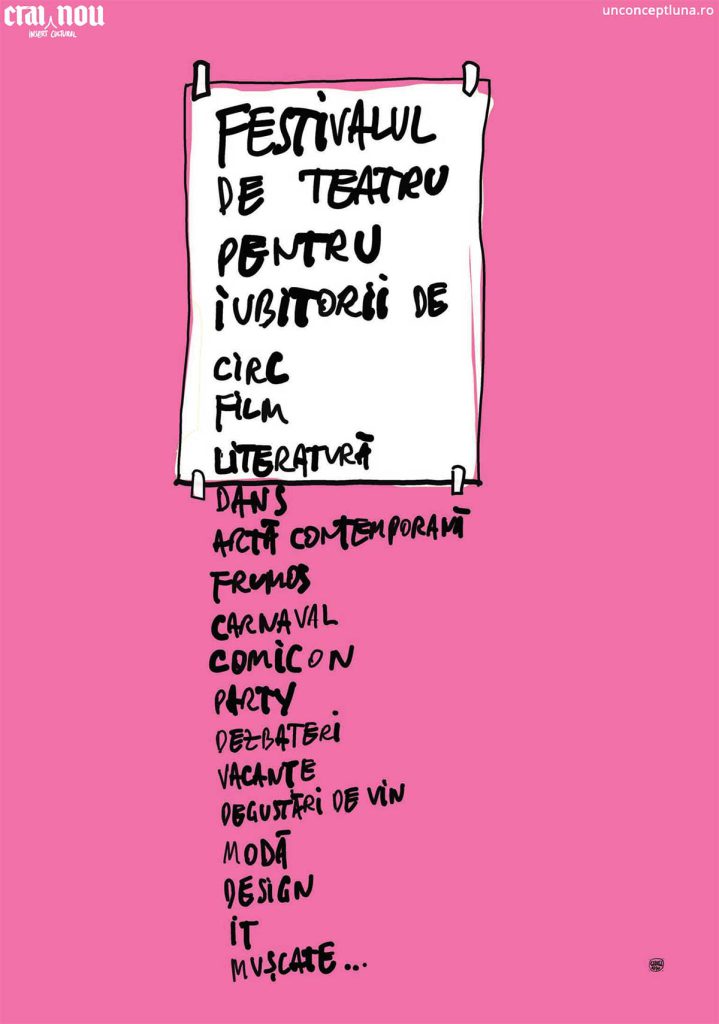 crai nou
INSERT CULTURAL
unconceptluna.ro
FESTIVALUL
DE TEATRU
PENTRU
IUBITORII DE
CIRC
FILM
LITERATURĂ
DANS
ARTĂ CONTEMPORANĂ
FRUMOS
CARNAVAL
COMICON
PARTY
DEZBATERI
VACANȚE
DEGUSTĂRI DE VIN
MODĂ
DESIGN
IT
MUȘCATE...